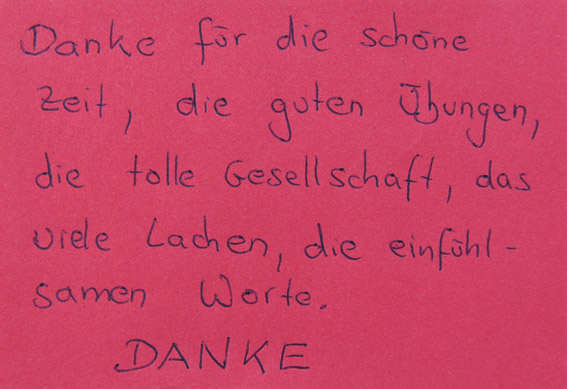 Danke für die schöne
Zeit, die guten Übungen,
die tolle Gesellschaft, das
viele Lachen, die einfühl-
samen Worte.
DANKE